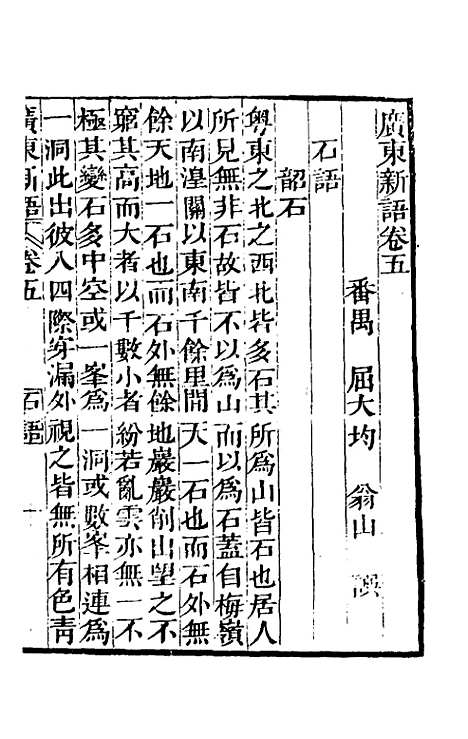 廣東新語卷五
番禺 屈大均 翁山 譔
石語
韶石
粵東之北之西北皆多石其所為山皆石也居人
所見無非石故皆不以為山而以為石蓋自梅嶺
以南湟關以東南千餘里間天一石也而石外無
餘天地一石也而石外無餘地巖巖削出望之不
窮其高而大者以千數小者紛若亂雲亦無一不
極其變石多中空或一峯為一洞或數峯相連為
一洞此出彼入四際穿漏外視之皆無所有色青
廣東新語 卷五 石語